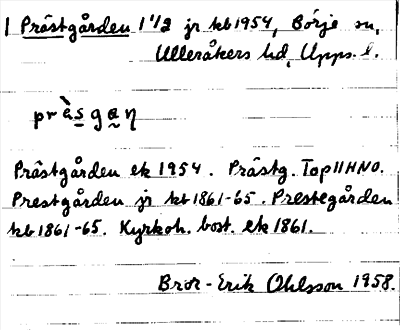 1 Prästgården 1 1/2 jr kb 1954, Börje sn,
Ulleråkers hd, Upps. l.
prä̀sgan
Prästgården ek 1954. Prästg. Top11HNO.
Prestgården jr kb 1861-65. Prestegården
kb 1861-65. Kyrkoh. bost. ek 1861.
Bror-Erik Ohlsson 1958.